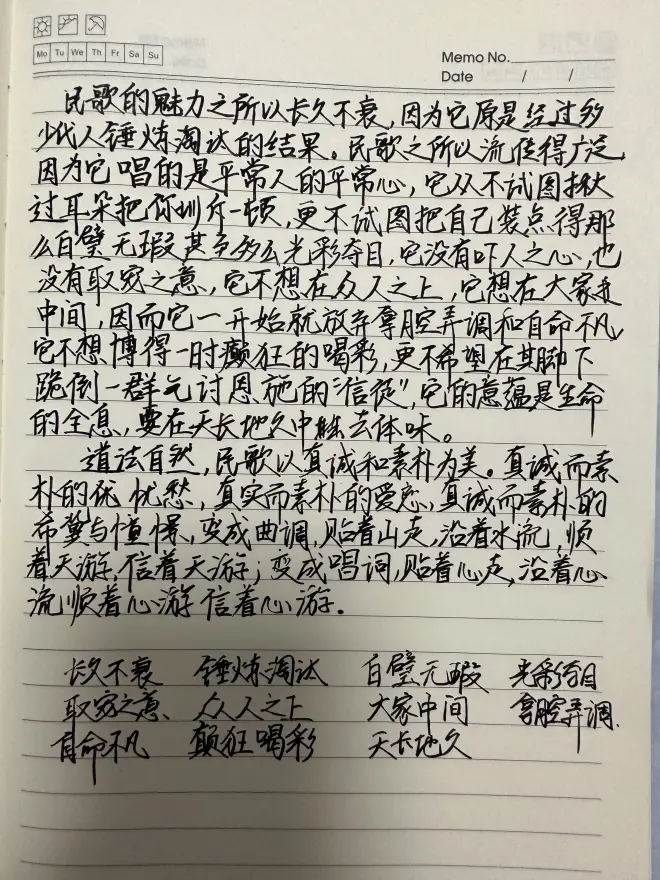 Mo Tu We Th Fr Sa Su
Memo No.
Date / /
民歌的魅力之所以长久不衰,因为它原是经过多
少代人锤炼淘汰的结果。民歌之所以流传得广泛,
因为它唱的是平常人的平常心,它从不试图揪
过耳朵把你训斥一顿,更不试图把自己装点得那
么白璧无瑕甚至多么光彩夺目,它没有吓人之心,也
没有取宠之意,它不想在众人之上,它想在大家
中间,因而它一开始就放弃拿腔弄调和自命不凡,
它不想博得一时癫狂的喝彩,更不希望在其脚下
跪倒一群乞讨恩施的“信徒”,它的意蕴是生命
的全息,要在天长地久中去体味。
道法自然,民歌以真诚和素朴为美。真诚而素
朴的忧愁,真实而素朴的爱恋,真诚而素朴的
希望与憧憬,变成曲调,贴着山走,沿着水流,顺
着天游,信着天游;变成唱词,贴着心走,沿着心
流,顺着心游 信着心游。
长久不衰 锤炼淘汰 白璧无瑕 光彩夺目
取宠之意、 众人之上 大家中间 拿腔弄调、
自命不凡 颠狂喝彩 天长地久